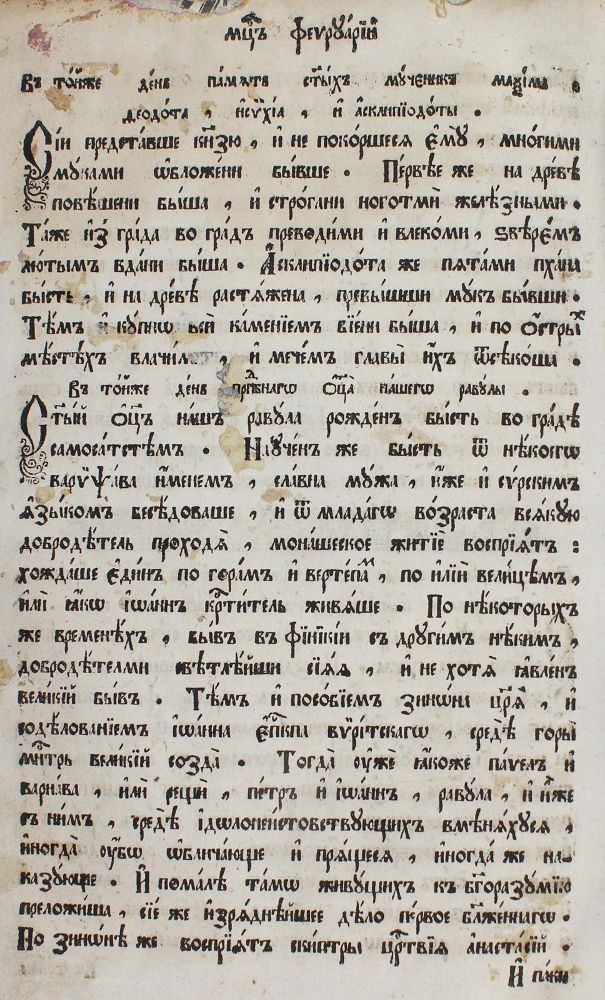 мцⷭ҇ъ феѵрꙋа́рїй
Въ то́йже де́нь па́мѧть ст҃ы́хъ мꙋ́ченикъ маѯі́мы .
дєодо́та , и҆сѷхі́а , и҆ а҆склипїодо́ты .
Сі́и предста́вше кнѧ́зю , и҆ не поко́ршесѧ є҆мꙋ̀ , мно́гими
мꙋ́ками ѡ҆бложе́ни бы́вше . Пе́рвѣе же на дре́вѣ
повѣ́шени бы́ша , и҆ стро́гани ноготмѝ желѣ́зными .
Та́же и҆з̾ гра́да во гра́дъ преводи́ми и҆ влеко́ми , ѕвѣрє́мъ
лю́тымъ вда́ни бы́ша . А҆склипїодо́та же пѧта́ми пха́на
бы́сть , и҆ на дре́вѣ растѧ́жена , превы́шши мꙋ́къ бы́вши .
Тѣ́мъ и҆ кꙋ́пнѡ всѝ ка́менїемъ бїе́ни бы́ша , и҆ по ѻ҆́стрыⷯ
мѣ́стѣхъ влачи́ми , и҆ мече́мъ главы̀ и҆́хъ ѿсѣко́ша .
Въ то́йже де́нь прпⷣбнагѡ ѻ҆ц҃а̀ на́шегѡ равꙋ́лы .
Ст҃ы́й ѻ҆ц҃ъ на́шъ равꙋ́ла рожде́нъ бы́сть во гра́дѣ
самоса́тстѣмъ . Наꙋче́нъ же бы́сть ѿ нѣ́коегѡ
варꙋѱа́ва и҆́менемъ , сла́вна мꙋ́жа , и҆́же и҆ сѵ́рскимъ
ѧ҆зы́комъ бесѣ́доваше , и҆ ѿ млада́гѡ во́зраста всѧ́кꙋю
добродѣ́тель проходѧ̀ , мона́шеское житїѐ воспрїѧ́тъ :
хожда́ше є҆ди́нъ по гора́мъ и҆ верте́пѡⷨ , по и҆лїѝ вели́цѣмъ ,
и҆лѝ ꙗ҆́кѡ і҆ѡа́ннъ крⷭ҇ти́тель живѧ́ше . По нѣ́которыхъ
же временѣ́хъ , бы́въ въ фїнїкі́и съ дрꙋги́мъ нѣ́кимъ ,
добродѣ́телми свѣтлѣ́йши сїѧ́ѧ , и҆ не хотѧ̀ ꙗ҆вле́нъ
вели́кїй бы́въ . Тѣ́мъ и҆ посо́бїемъ зинѡ́на цр҃ѧ̀ , и҆
содѣ́лованїемъ і҆ѡа́нна є҆пⷭ҇кпа вѷри́тскагѡ , средѣ̀ горы̀
мнⷭ҇ты́рь вели́кїй созда̀ . Тогда̀ ᲂу҆жѐ ꙗ҆́коже па́ѵелъ и҆
варна́ва , и҆лѝ рещѝ , пе́тръ и҆ і҆ѡа́ннъ , равꙋ́ла , и҆ и҆̀же
съ ни́мъ , средѣ̀ і҆дѡлонеи́стовствꙋющихъ вмѣнѧ́хꙋсѧ ,
и҆ногда̀ ᲂу҆́бѡ ѡ҆блича́юще и҆ прѧ́щесѧ , и҆ногда́ же на-
ка́зꙋюще . И҆ пома́лѣ та́мѡ живꙋ́щихъ къ бг҃оразꙋ́мїю
преложи́ша , сїе́ же и҆зрѧ́днѣйшее дѣ́ло пе́рвое бл҃же́ннагѡ .
По зинѡ́нѣ же воспрїѧ́тъ ски́птры црⷭ҇твїѧ а҆наста́сїй .
И҆ па́ки